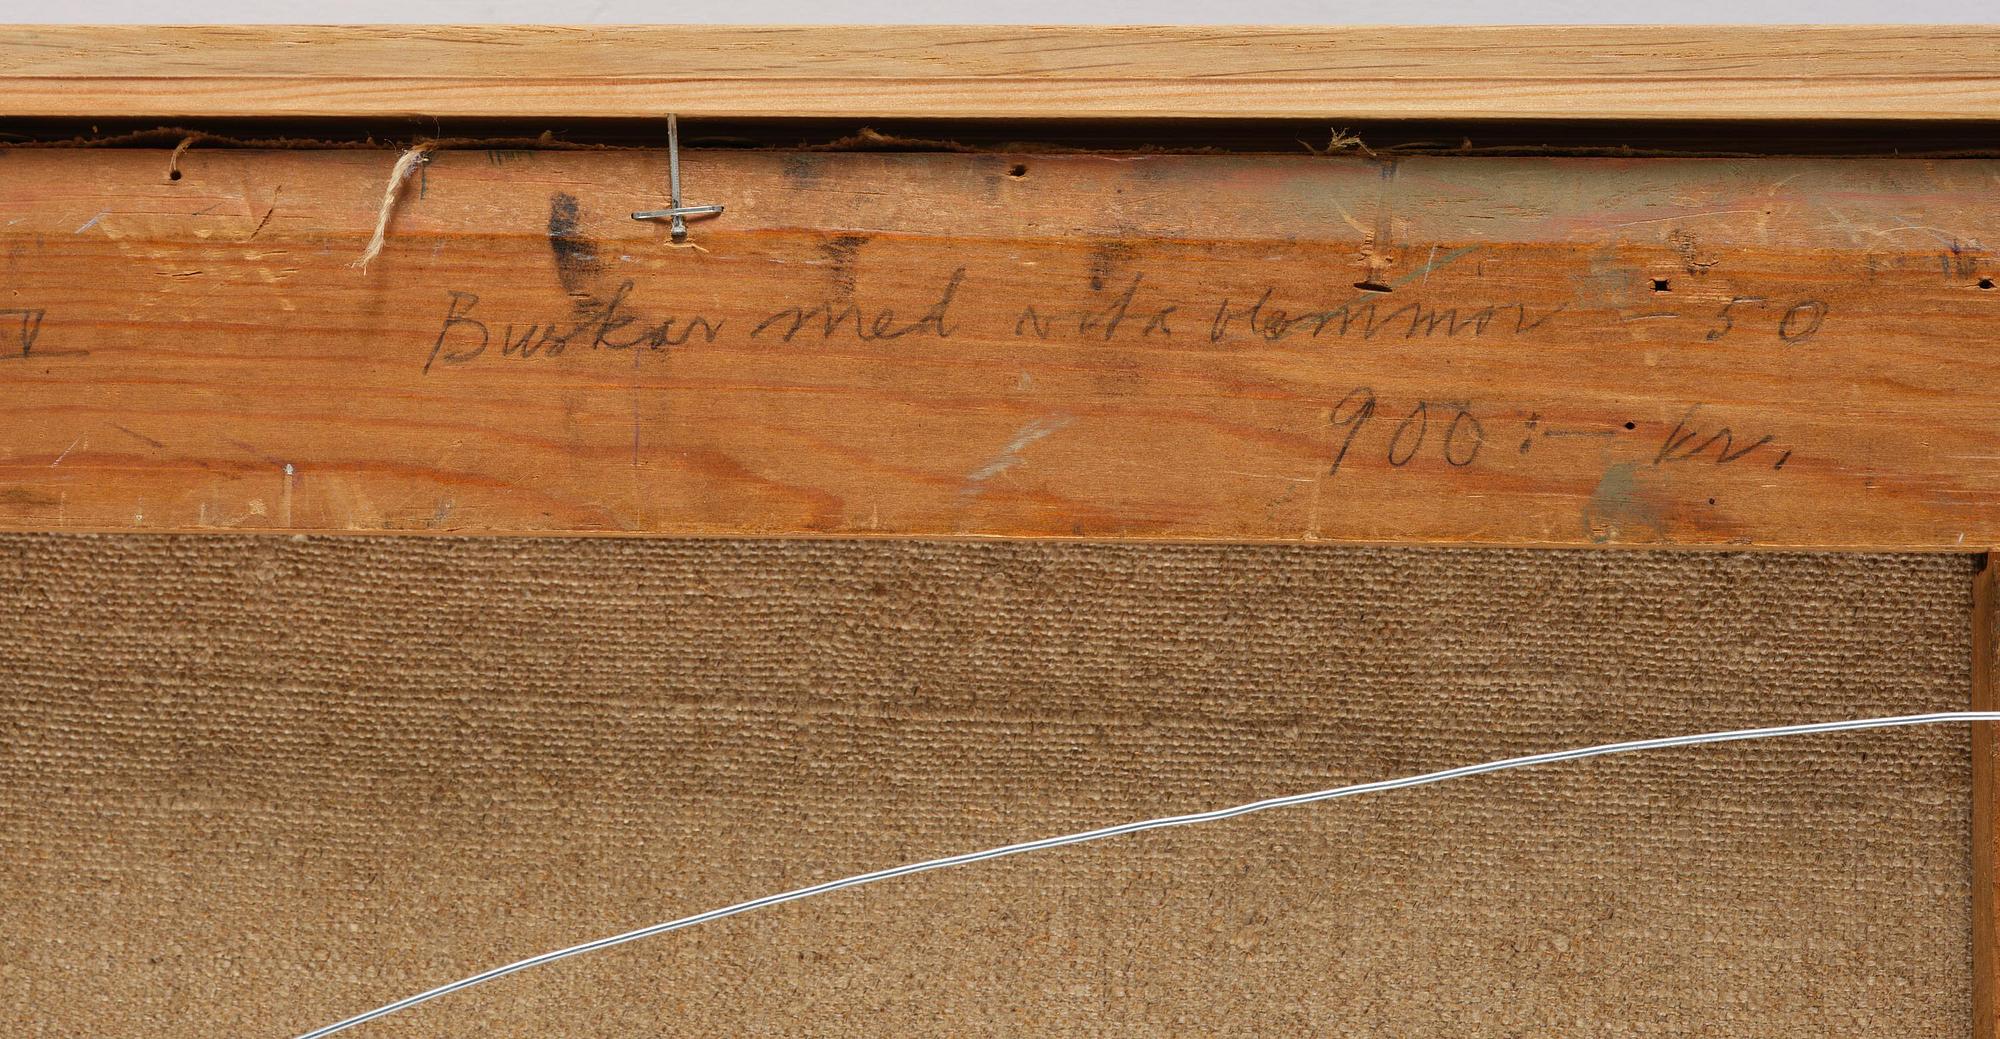 IV Buskar med vita blommor – 50
900:— kr.